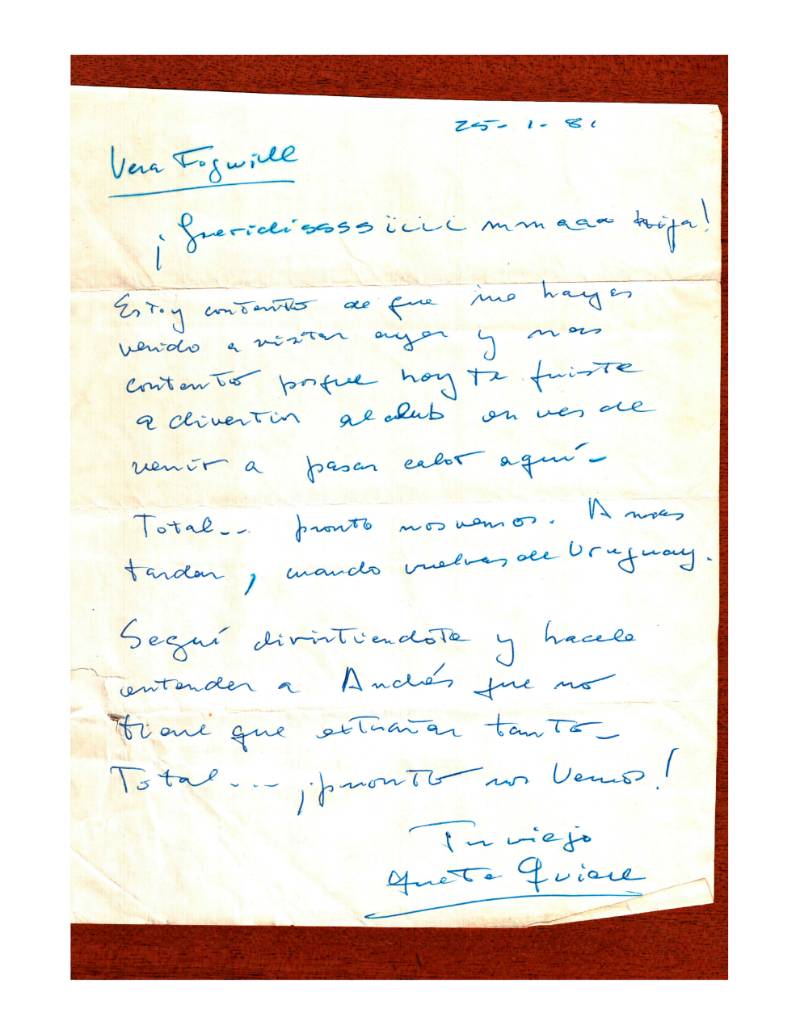 25-1-81
Vera Fogwill
¡Queridissssiiii mmaaa hija!
Estoy contento de que me hayas
venido a visitar ayer y mas
contento porque hoy te fuiste
a divertir al club en ves de
venir a pasar calor aquí-
Total-- pronto nos vemos. A mas
tardar, cuando vuelvas de Uruguay.
Seguí divirtiendote y hacele
entender a Andrés que no
tiene que extrañar tanto-
Total--- ¡pronto nos vemos!
Tu viejo
que te quiere